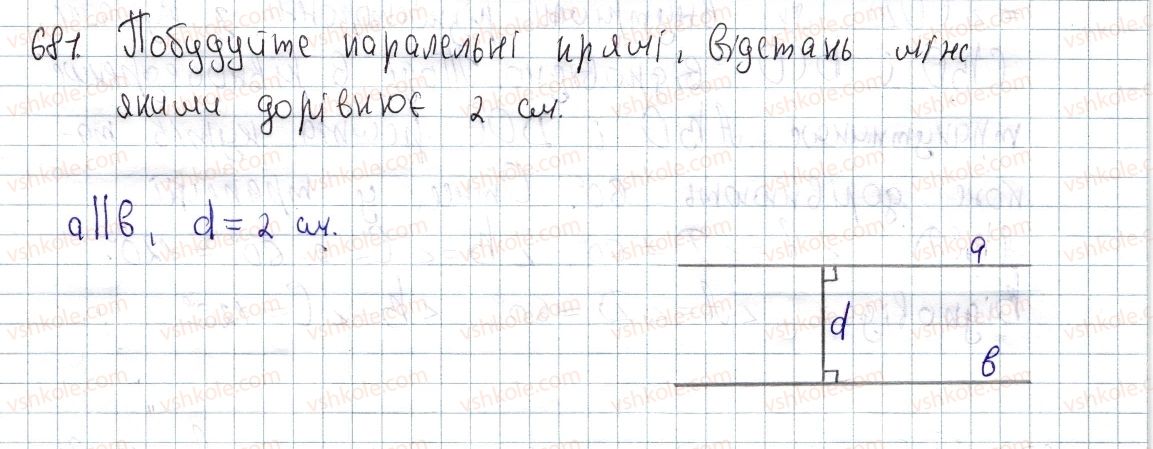 681. Побудуйте паралельні прямі, відстань між
якими дорівнює 2 см.
a||b, d = 2 см.
a
d
b
vshkole.com